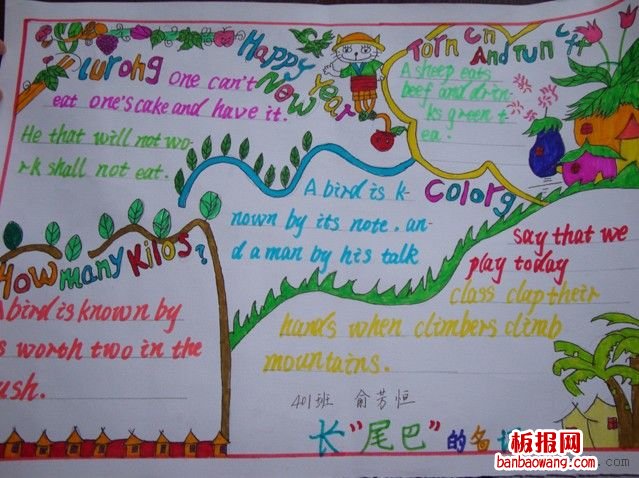 lurong one can't
eat one's cake and have it.
He that will not wo-
rk shall not eat.
Happy
New
Year
Torn cn
And run
A sheep eats
beef and drin-
ks green t
ea.
A bird is k-
nown by its note, an-
d a man by his talk
Colorg
say that we
play today
class clap their
hands when climbers climb
mountains.
How many Kilos?
A bird is known by
s worth two in the
ush.
401班 俞芳恒
长"尾巴"的名
板报网
banbaowang.com